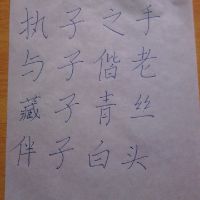 执子之手
与子偕老
藏子青丝
伴子白头